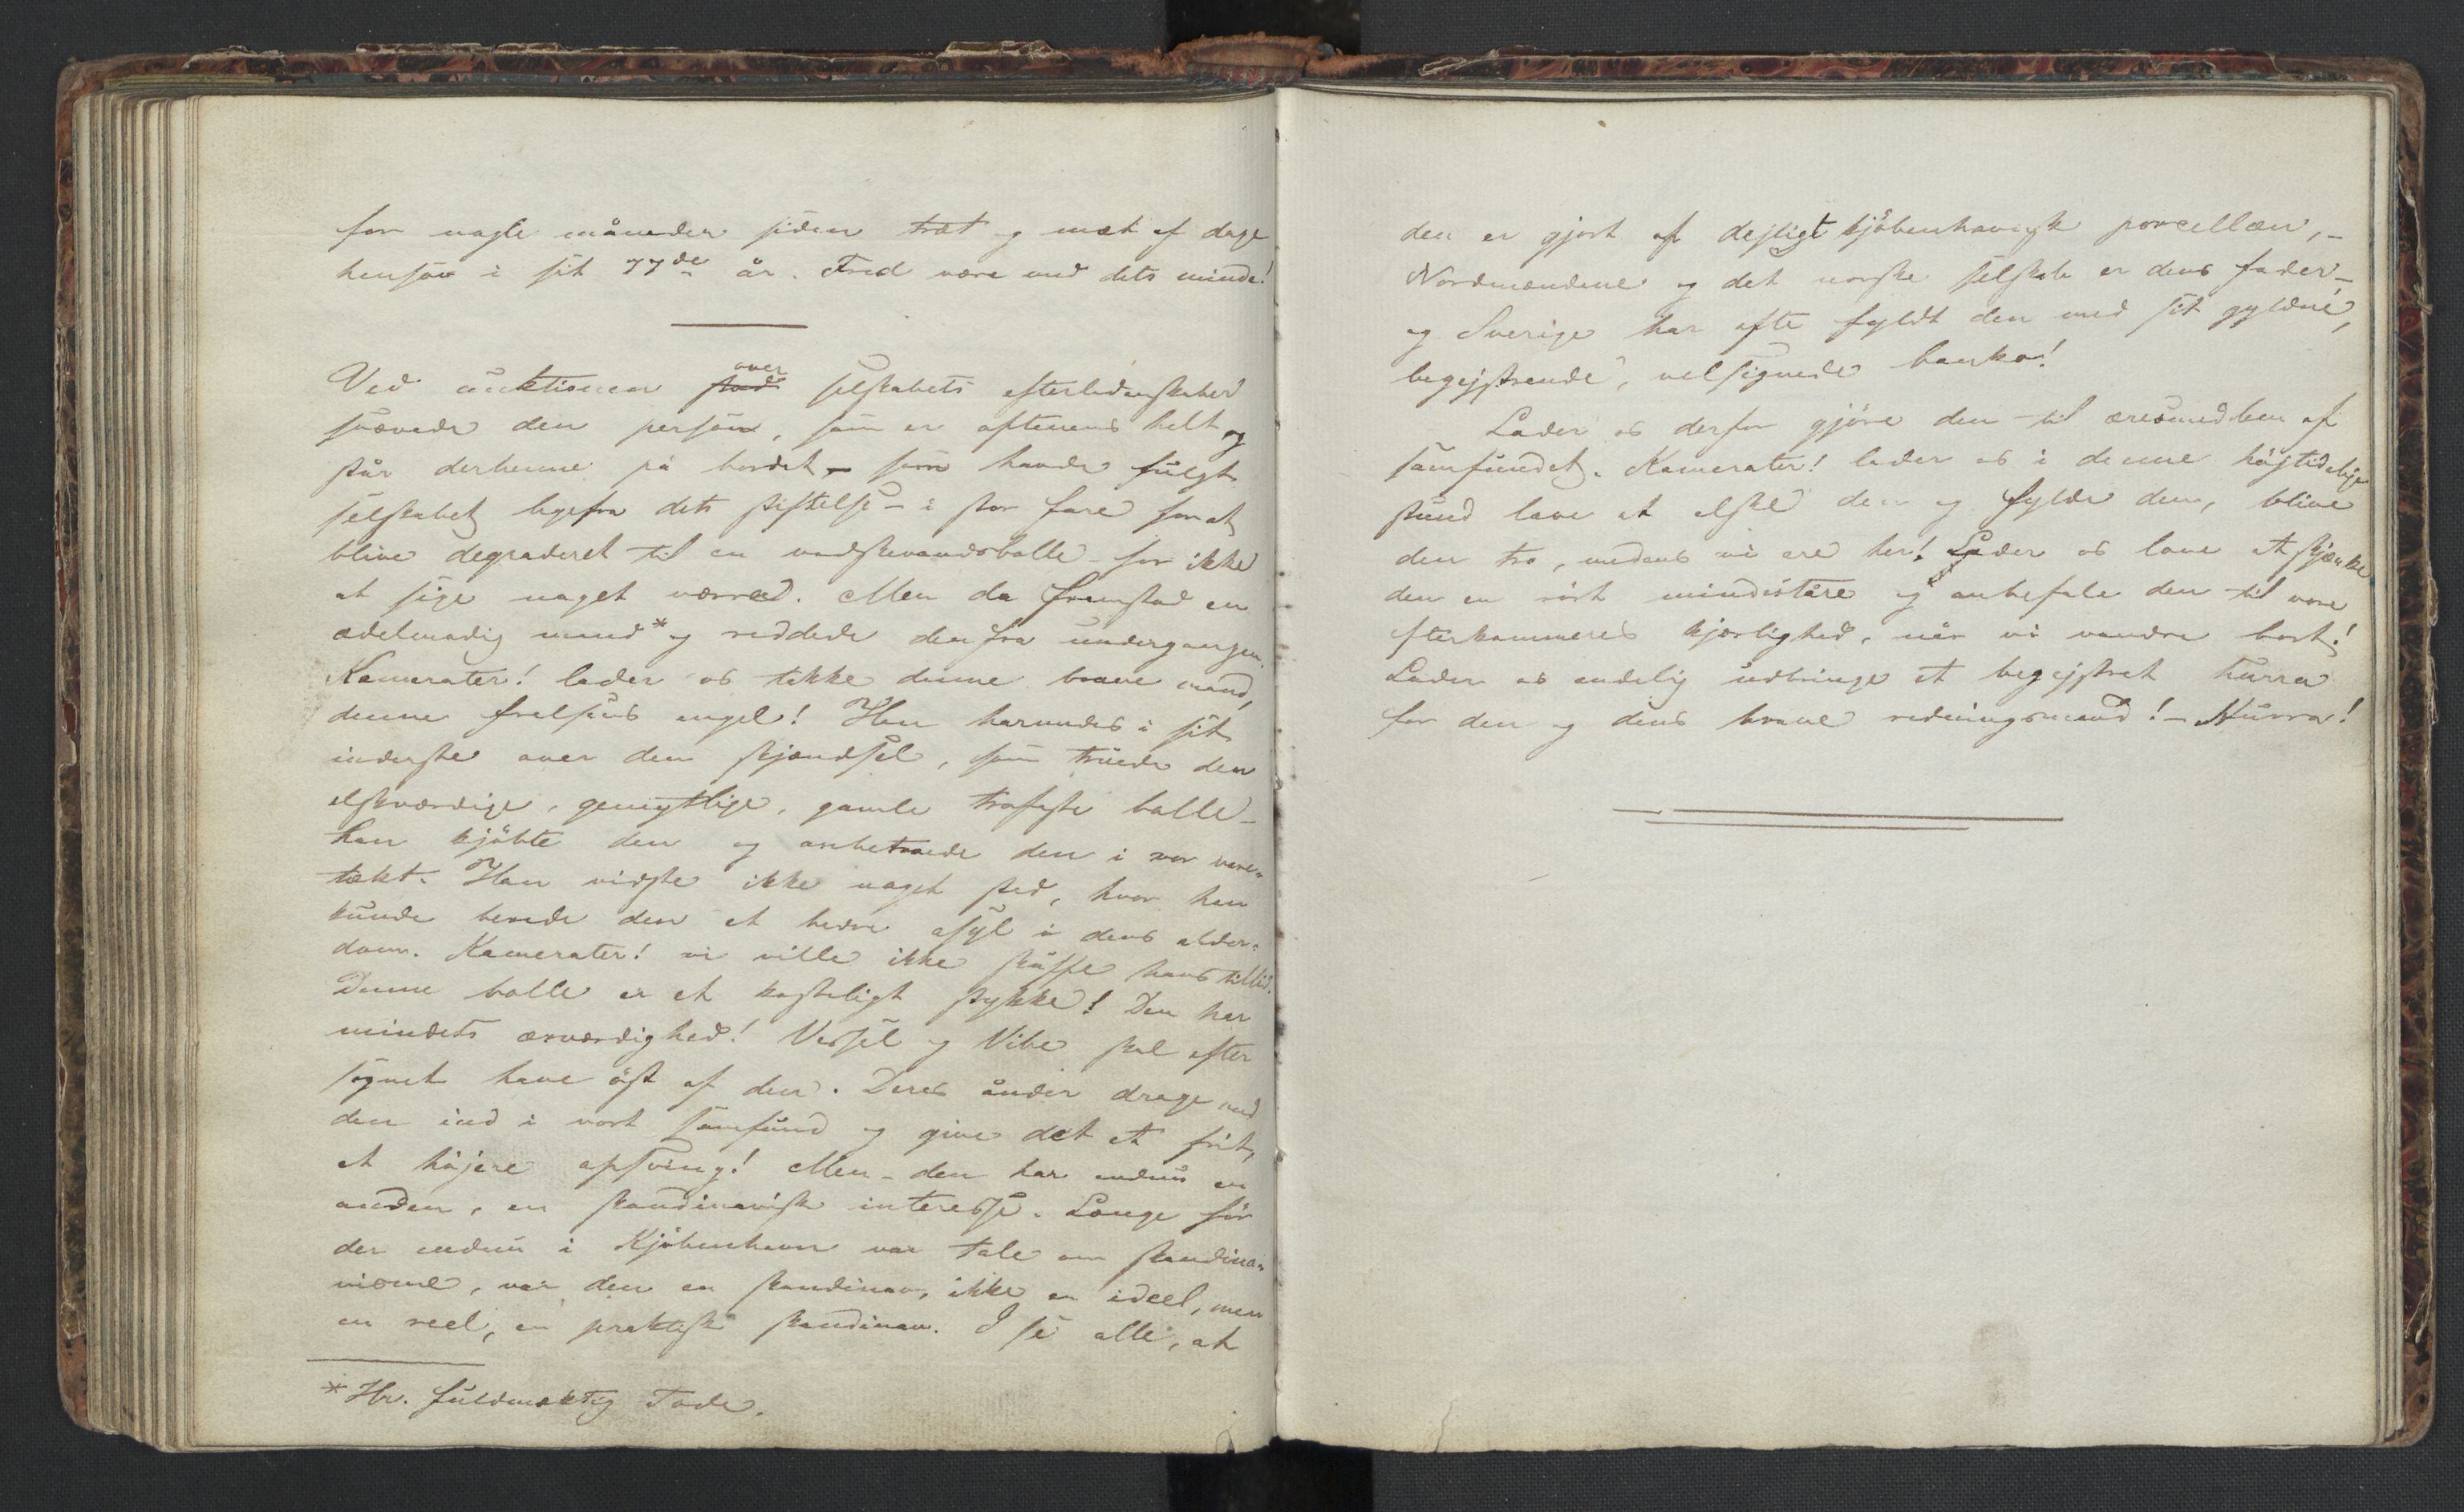 for nogle måneder siden træt og mæt af dage
hensov i sit 77de år. Fred være med dets minde!
Ved auktionen over selskabets efterladenskaber
svævede den person, som er aftenens helt og
står derhenne på bordet – som havde fulgt
selskabet ligefra dets stiftelse – i stor fare for at
blive degraderet til en vadskevandsbolle – for ikke
at sige noget værred. Men da fremstod en
ædelmodig mand* og reddede den fra undergangen.
Kamerater! lader os takke denne brave mand,
denne frelsens engel! Han harmedes i sit
inderste over den skjændsel, som truede den
elskværdige, gemytlige, gamle trofaste bolle –
han kjöbte den og anbetroede den i vor vare-
tækt. Han vidste ikke noget sted, hvor han
kunde berede den et bedre asyl i dens alder-
dom. Kamerater! vi ville ikke skuffe hans tillid.
Denne bolle er et kosteligt stykke! Den har
mindets ærværdighed! Vessel og Vibe skal efter
sagnet have öst af den. Deres ånder drage med
den ind i vort samfund og give det et frit,
et höjere opsving! Men – den har endnu en
anden, en skandinavisk interesse. Længe för
der endnu i Kjöbenhavn var tale om skandina-
visme, var den en skandinav, ikke en ideel, men
en reel, en praktisk skandinav. I se alle, at
* Hr. fuldmæktig Tode.
den er gjort af dejligt kjöbenhavnsk porcellæn, –
Nordmændene og det norske selskab er dens fader –
og Sverige har ofte fyldt den med sit gyldne,
begejstrende, velsignede banko!
Lader os derfor gjöre den til æresmedlem af
samfundet. Kamerater! lader os i denne höjtidelige
stund love at elske den og fylde den, blive
den tro, medens vi ere her! Lader os love at skjænke
den en rört mindetåre og anbefale den til vore
efterkommeres kjærlighed, når vi vandre bort!
Lader os endelig udbringe et begejstret hurra
for den og dens brave redningsmand! – Hurra!